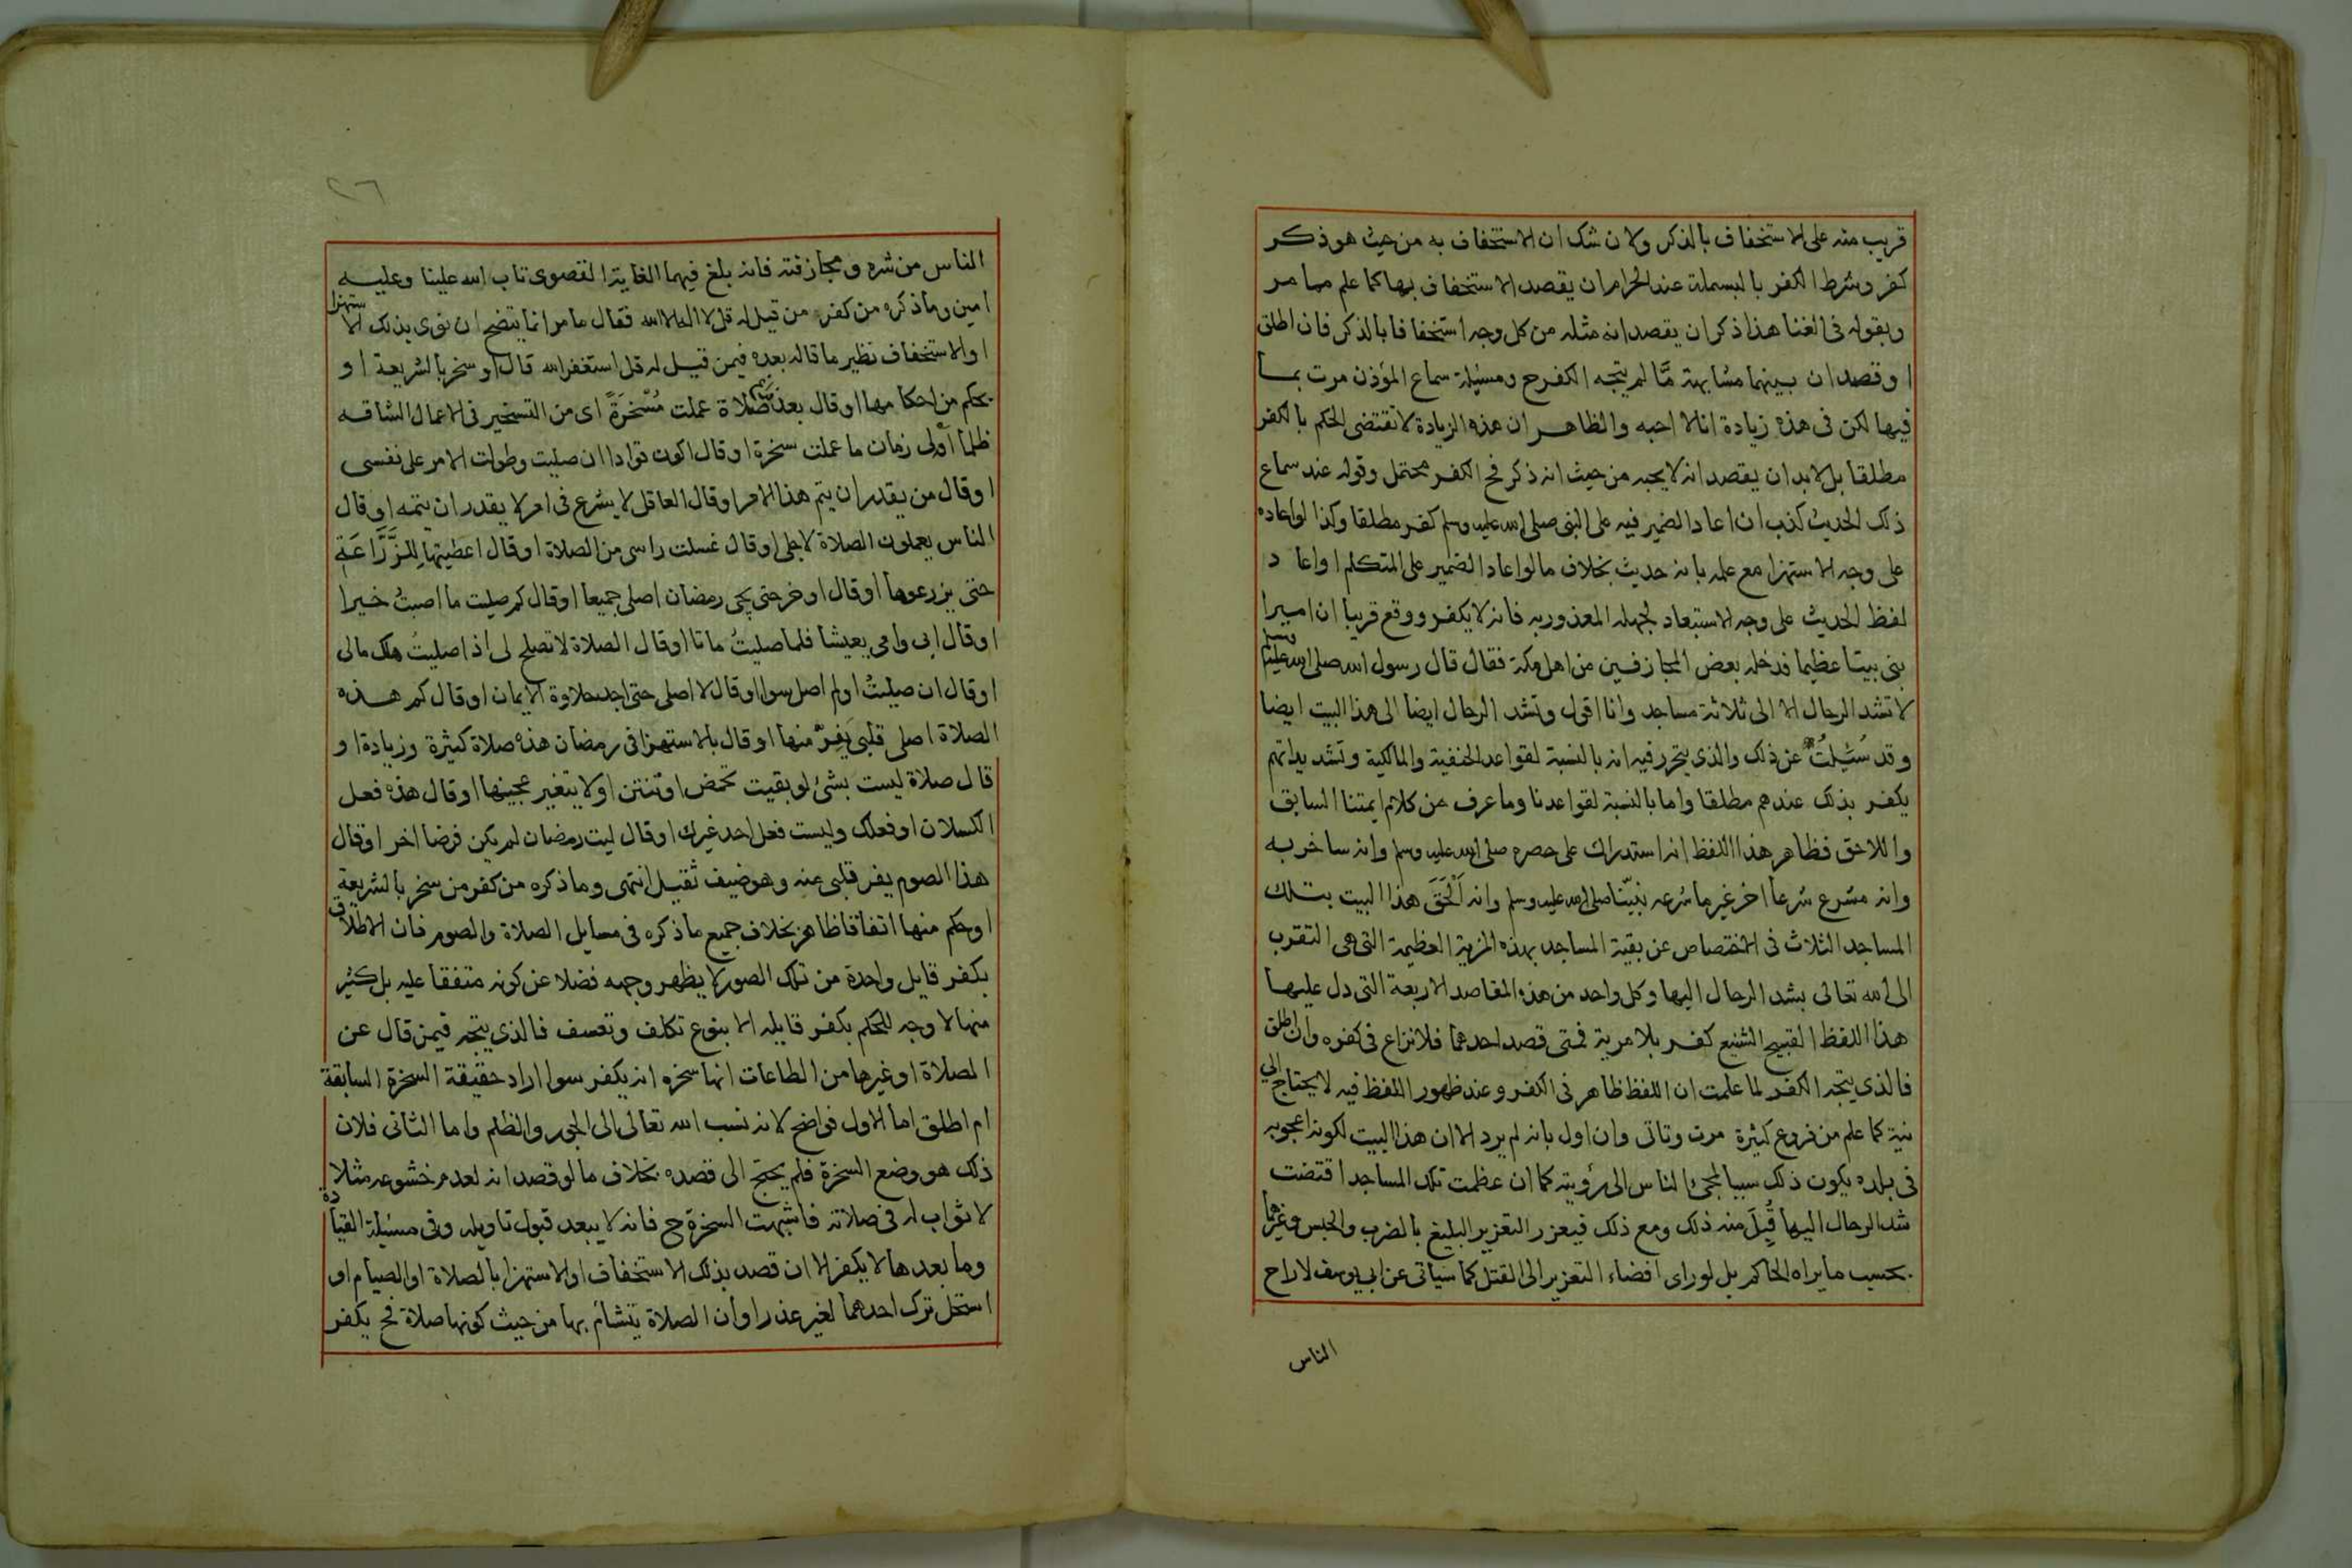 قريب منه على الاستخفاف بالذكر ولان شك ان الاستخفاف به من حيث هو ذكر
كفر وشرط الكفر بالبسملة عند الحرام ان يقصد الاستخفاف بها كما علم مما مر
وبقوله في الغنا هذا ذكر ان يقصد انه مثله من كل وجه استخفافا بالذكر فان اطلق
او قصد ان بينهما مشابهة مَّا لم يتجه الكفر ح ومسئلة سماع المؤذن مرت بما
فيها لكن في هذه زيادة انا لا احبه والظاهر ان هذه الزيادة لا تقتضى الحكم بالكفر
مطلقا بل لا بد ان يقصد انه لا يحبه من حيث انه ذكر فح الكفر محتمل وقوله عند سماع
ذلك الحديث كذب ان اعاد الضمير فيه على النبي صلى الله عليه وسلم كفر مطلقا وكذا لو اعاده
على وجه الاستهزا مع علمه بانه حديث بخلاف ما لو اعاد الضمير على المتكلم او اعاد
لفظ الحديث على وجه الاستبعاد لجهله المعذور به فانه لا يكفر ووقع قريبا ان اميرا
بنى بيتا عظيما فدخله بعض المجازفين من اهل مكة فقال قال رسول الله صلى الله عليه وسلم
لا تشد الرحال الا الى ثلاثة مساجد وانا اقول وتشد الرحال ايضا الى هذا البيت ايضا
وقد سُئلتُ عن ذلك والذي يتحرر فيه انه بالنسبة لقواعد الحنفية والمالكية وتشديداتهم
يكفر بذلك عندهم مطلقا واما بالنسبة لقواعدنا وما عرف من كلام ايمتنا السابق
واللاحق فظاهر هذا اللفظ انه استدراك على حصره صلى الله عليه وسلم وانه ساخر به
وانه مشرع شرعا اخر غير ما شرعه نبيّنا صلى الله عليه وسلم وانه اَلْحَقَ هذا البيت بتلك
المساجد الثلاث في الاختصاص عن بقية المساجد بهذه المزية العظيمة التي هي التقرب
الى الله تعالى بشد الرحال اليها وكل واحد من هذه المقاصد الاربعة التي دل عليها
هذا اللفظ القبيح الشنيع كفر بلا مرية فمتى قصد احدهما فلا نزاع في كفره وان اطلق
فالذي يتجه الكفر لما علمت ان اللفظ ظاهر في الكفر وعند ظهور اللفظ فيه لا يحتاج الي
نية كما علم من فروع كثيرة مرت وتاتى وان اول بانه لم يرد الا ان هذا البيت لكونه اعجوبه
في بلده يكون ذلك سببا لمجئ الناس الى رؤيته كما ان عظمت تلك المساجد اقتضت
شد الرحال اليها قُبِلَ منه ذلك ومع ذلك فيعزر التعزير البليغ بالضرب والحبس وغيرهما
بحسب ما يراه الحاكم بل لو راى افضاء التعزير الى القتل كما سياتى عن ابي يوسف لاراح
الناس
٢٦
الناس من شره ومجازفته فانه بلغ فيهما الغاية القصوى تاب الله علينا وعليه
امين وما ذكره من كفر من قيل له قل لا اله الا الله فقال ما مر انما يتضح ان نوى بذلك الاستهزا
او الاستخفاف نظير ما قاله بعده فيمن قيل له قل استغفر الله قال او سخر بالشريعة او
بحكم من احكامها او قال بعد صلاة عملت مُسْخَرَةً اى من التسخير في الاعمال الشاقه
ظلما اوْلى زمان ما عملت سخرة او قال اكون قوادا ان صليت وطولت الامر على نفسى
او قال من يقدر ان يتم هذا الامر او قال العاقل لا يشرع في امر لا يقدر ان يتمه او قال
الناس يعملون الصلاة لاجلى او قال غسلت راسى من الصلاة او قال اعطيتها لِلزَّرَّاعَةِ
حتى يزرعوها او قال اوخر حتى يجى رمضان اصلى جميعا او قال كم صليت ما اصبتُ خيرا
او قال ابى وامى يعيشا فلما صليتُ ماتا او قال الصلاة لا تصلح لى اذا صليتُ هلك مالى
او قال ان صليتُ او لم اصل سوا او قال لا اصلى حتى اجد حلاوة الايمان او قال كم هذه
الصلاة اصلى قلبى يَفِرّ منها او قال بالاستهزا في رمضان هذه صلاة كثيرة وزيادة او
قال صلاة ليست بشئ لو بقيت تحمض او تنتن او لا يتغير عجينها او قال هذه فعل
الكسلان او فعلك وليست فعل احد غيرك او قال ليت رمضان لم يكن فرضا اخر او قال
هذا الصوم يفر قلبى منه وهو ضيف ثقيل انتهى وما ذكره من كفر من سخر بالشريعة
او حكم منها اتفاقا ظاهر بخلاف جميع ما ذكره في مسايل الصلاة والصوم فان الاطلاق
بكفر قايل واحدة من تلك الصور لا يظهر وجهه فضلا عن كونه متفقا عليه بل كثير
منها لا وجه للحكم بكفر قايله الا بنوع تكلف وتعسف فالذي يتجه فيمن قال عن
الصلاة او غيرها من الطاعات انها سخره انه يكفر سوا اراد حقيقة السخرة السابقة
ام اطلق اما الاول فواضح لانه نسب الله تعالى الى الجور والظلم واما الثانى فلان
ذلك هو وضع السخرة فلم يحتج الى قصده بخلاف ما لو قصد انه لعدم خشوعه مثلا
لا ثواب له في صلاته فاشبهت السخرة ح فانه لا يبعد قبول تاويله وفي مسئلة القيادة
وما بعدها لا يكفر الا ان قصد بذلك الاستخفاف او الاستهزا بالصلاة او الصيام او
استحل ترك احدهما لغير عذر او أن الصلاة يتشائم بها من حيث كونها صلاة فح يكفر